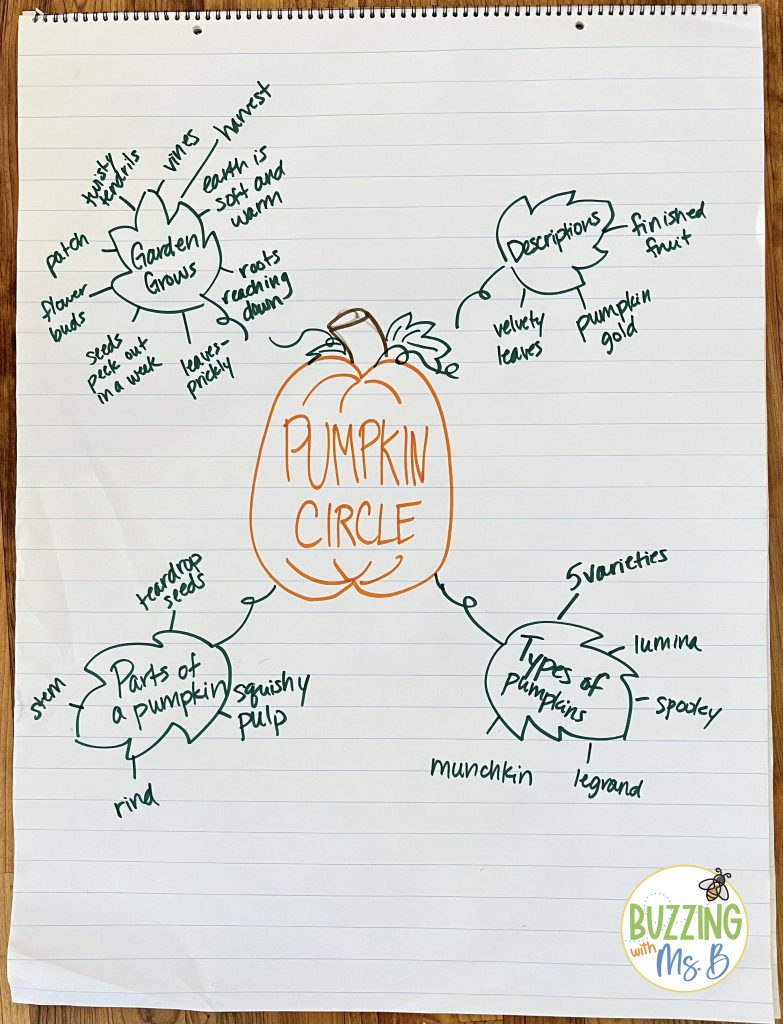 Garden
Grows
patch
twisty
tendrils
vines
harvest
earth is
soft and
warm
roots
reaching
down
leaves-
prickly
seeds
peek out
in a week
flower
buds
Descriptions
finished
fruit
pumpkin
gold
velvety
leaves
PUMPKIN
CIRCLE
Parts of
a pumpkin
teardrop
seeds
squishy
pulp
rind
stem
Types of
pumpkins
5 varieties
lumina
spooky
legrand
munchkin
BUZZING
with
Ms. B